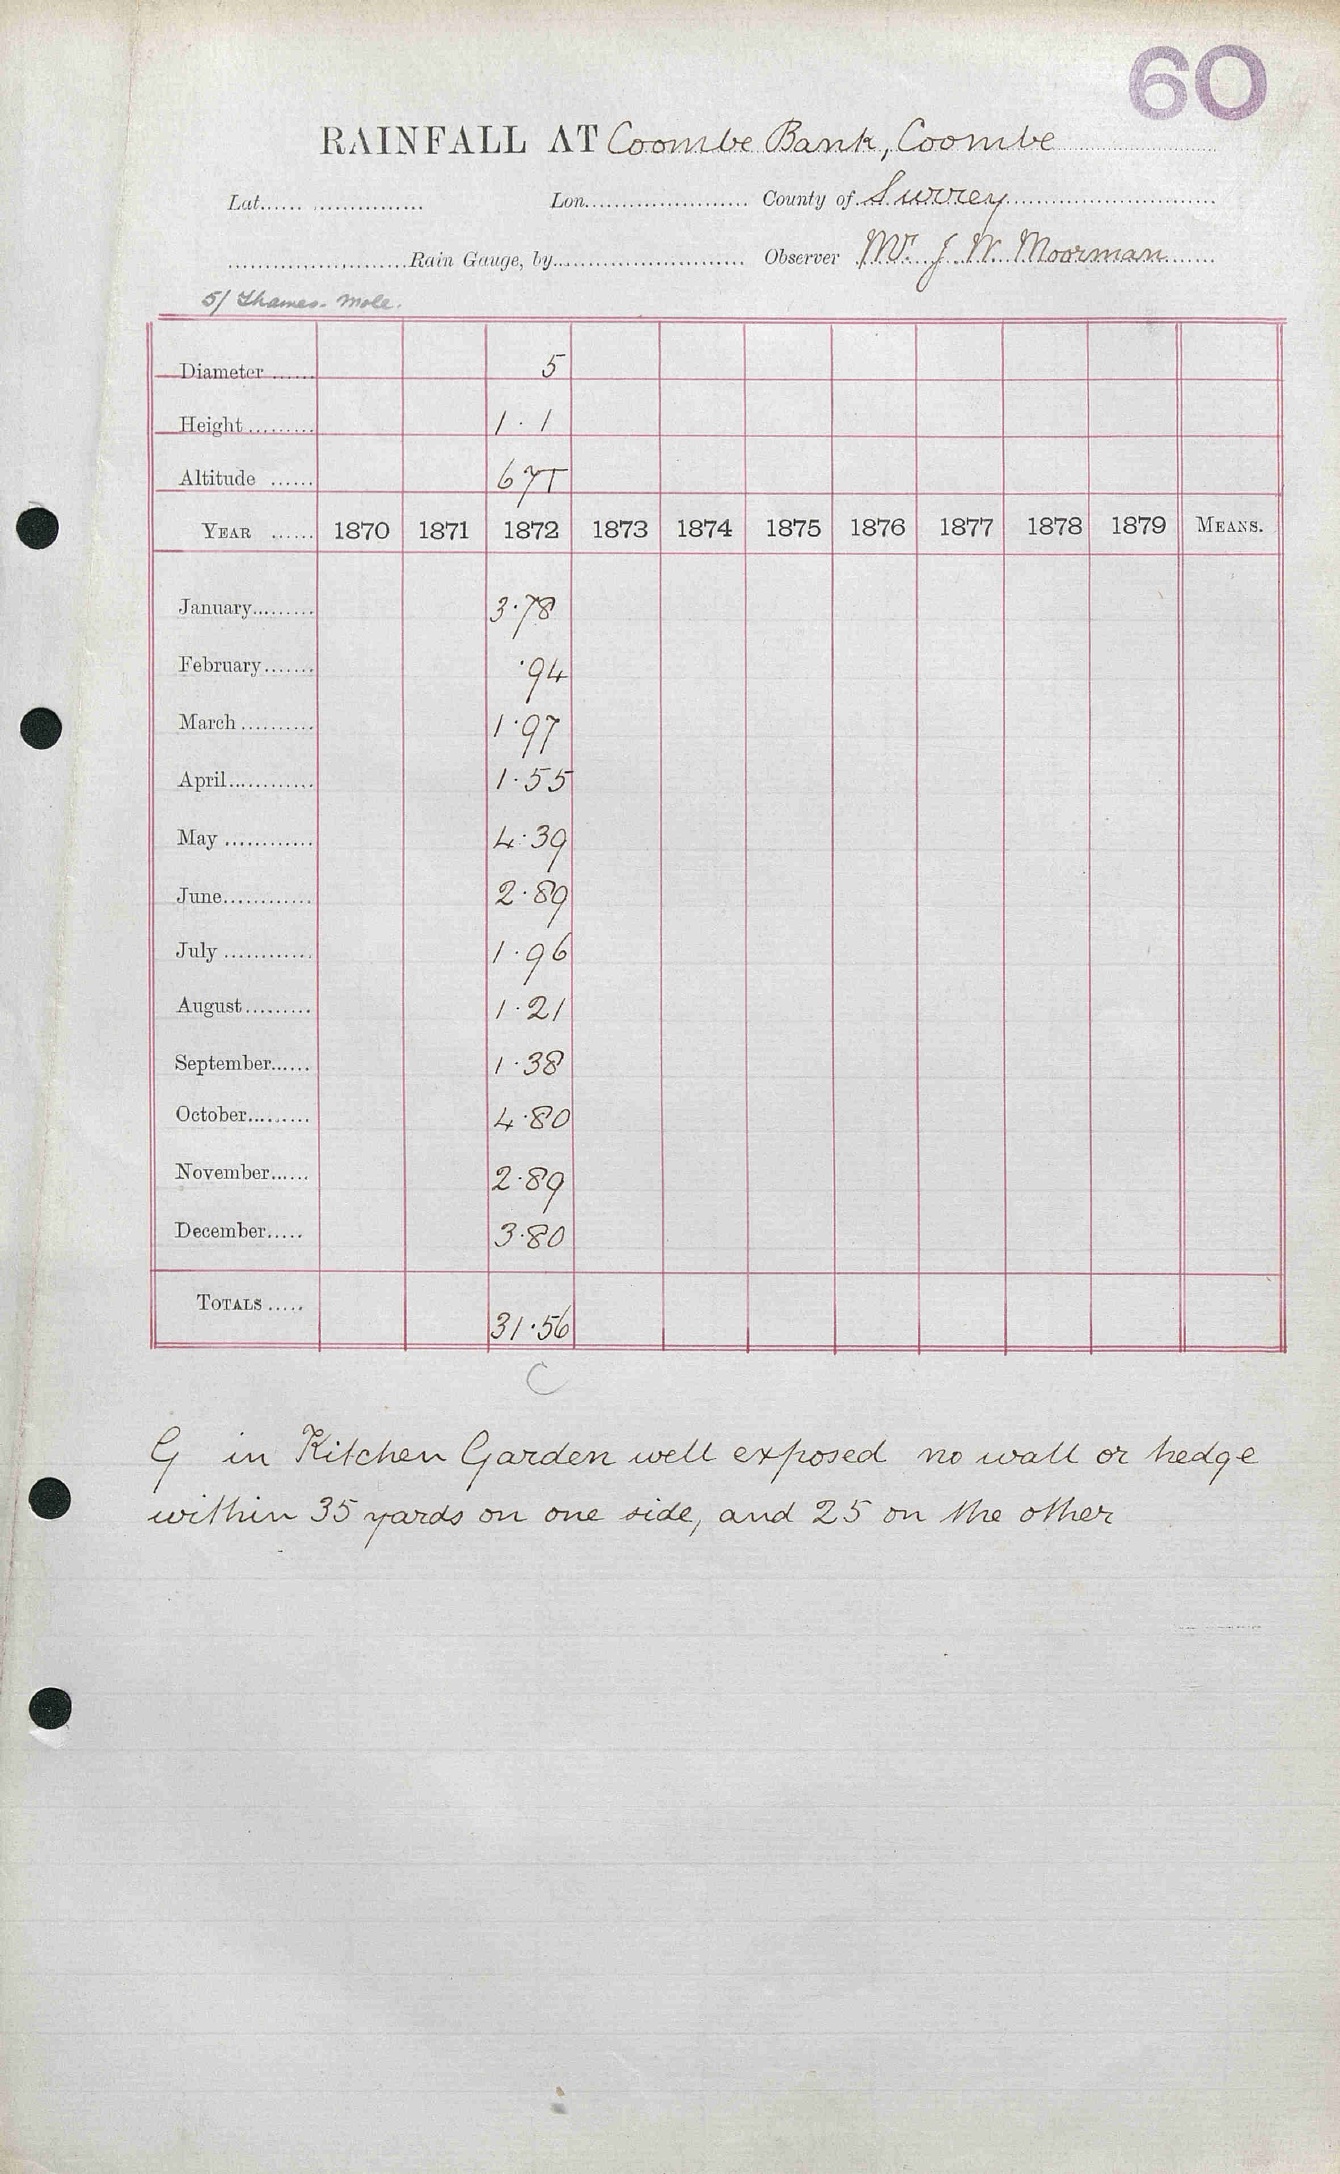 60
RAINFALL AT Coombe Bank, Coombe
Lat. Lon. County of Surrey
Rain Gauge, by Observer Mr. J. W. Moorman
5/ Thames. Mole.
Diameter 5
Height 1 . 1
Altitude 67T
YEAR 1870 1871 1872 1873 1874 1875 1876 1877 1878 1879 MEANS.
January 3.78
February .94
March 1.97
April 1.55
May 4.39
June 2.89
July 1.96
August 1.21
September 1.38
October 4.80
November 2.89
December 3.80
TOTALS 31.56
C
G in Kitchen Garden well exposed no wall or hedge
within 35 yards on one side, and 25 on the other